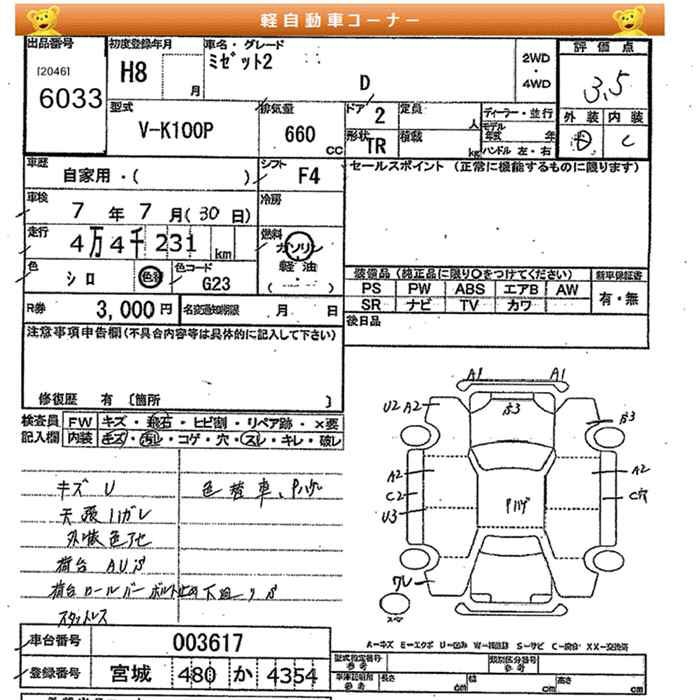 軽自動車コーナー
出品番号
[2046]
6033
初度登録年月
H8
月
車名・グレード
ミゼット2
D
2WD
・
4WD
評価点
3.5
外装 内装
C
型式
V-K100P
排気量
660
CC
ドア 2
定員
人
ディーラー・並行
モデル年式 年
形状 TR
積載
kg
ハンドル 左・右
車歴
自家用・( )
シフト
F4
セールスポイント (正常に機能するものに限ります)
車検
7 年 7 月(30日)
冷房
走行
4万4千231 km
燃料
ガソリン
軽油
色
シロ
色替
色コード
G23
装備品(純正品に限り○をつけてください)
新車保証書
PS PW ABS エアB AW
有・無
SR ナビ TV カワ
R券
3,000円
名変通知期限 月 日
後日品
注意事項申告欄(不具合内容等は具体的に記入して下さい)
修復歴 有 〔箇所 〕
検査員
記入欄
FW キズ・飛石・ヒビ割・リペア跡・×要
内装 キズ・汚レ・コゲ・穴・スレ・キレ・破レ
キズ U
色替車、Pハゲ
天張ハガレ
外装色アセ
荷台 AUS
スタットレス
A1 A1
U2 A2
B3
B3
A2
C2
U3
Pハゲ
A2
C穴
ワレ
A=キズ E=エクボ U=凹み W=補修跡 S=サビ C=腐食 XX=交換済
車台番号
003617
登録番号
宮城 480 か 4354
型式指定番号
参考
類別区分番号
参考
車庫証明用
参考
長さ cm
幅 cm
高さ cm